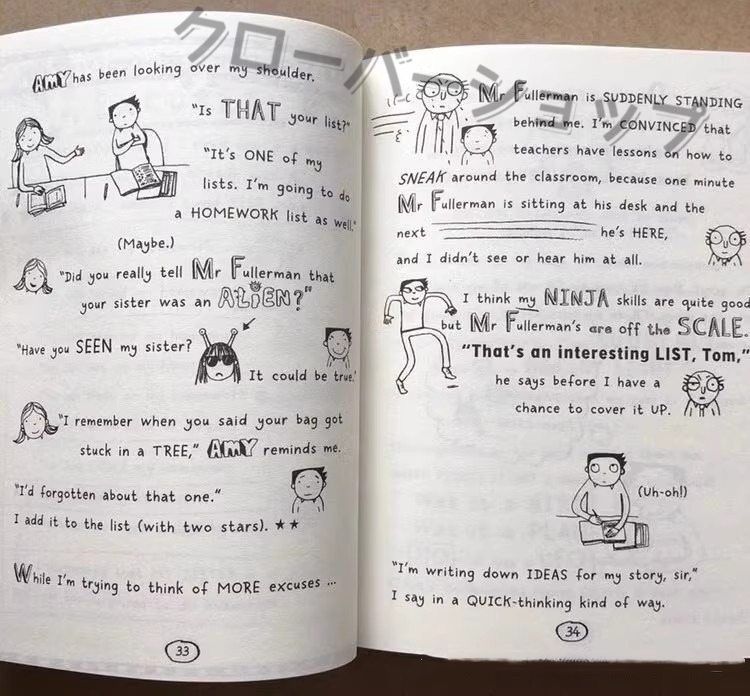 クローバーショップ
AMY has been looking over my shoulder.
"Is THAT your list?"
"It's ONE of my
lists. I'm going to do
a HOMEWORK list as well."
(Maybe.)
"Did you really tell Mr Fullerman that
your sister was an ALIEN?"
"Have you SEEN my sister?
It could be true."
"I remember when you said your bag got
stuck in a TREE," AMY reminds me.
"I'd forgotten about that one."
I add it to the list (with two stars). ★★
While I'm trying to think of MORE excuses ...
33
Mr Fullerman is SUDDENLY STANDING
behind me. I'm CONVINCED that
teachers have lessons on how to
SNEAK around the classroom, because one minute
Mr Fullerman is sitting at his desk and the
next he's HERE,
and I didn't see or hear him at all.
I think my NINJA skills are quite good
but Mr Fullerman's are off the SCALE.
"That's an interesting LIST, Tom,"
he says before I have a
chance to cover it UP.
(Uh-oh!)
"I'm writing down IDEAS for my story, sir,"
I say in a QUICK-thinking kind of way.
34